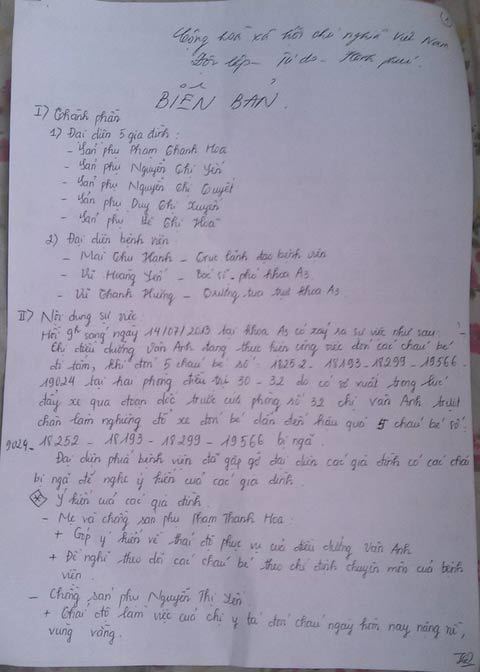 ①
Cộng hoà xã hội chủ nghĩa Việt Nam
Độc lập - Tự do - Hạnh phúc.
BIÊN BẢN.
I) Thành phần
1) Đại diện 5 gia đình:
- Sản phụ Phạm Thanh Hoa
- Sản phụ Nguyễn Thị Yến
- Sản phụ Nguyễn Thị Quyết
- Sản phụ Duy Thị Xuyến
- Sản phụ Bế Thị Hoà
2) Đại diện bệnh viện
- Mai Thu Hạnh - Trực lãnh đạo bệnh viện
- Vũ Hoàng Yến - Bác sĩ - phó khoa A3
- Vũ Thanh Hương - Trưởng tua trực khoa A3
II) Nội dung sự việc
Hồi 9h sáng ngày 14/07/2013 tại khoa A3 có xảy ra sự việc như sau:
Chị điều dưỡng Vân Anh đang thực hiện công việc đón các cháu bé
đi tắm, khi đón 5 cháu bé số: 18252 - 18193 - 18299 - 19566
19024 tại hai phòng điều trị 30 - 32 do có sơ xuất trong lúc
đẩy xe qua đoạn dốc trước cửa phòng số 32 chị Vân Anh trượt
chân làm nghiêng đổ xe đón bé dẫn đến hậu quả 5 cháu bé số:
9024 - 18252 - 18193 - 18299 - 19566 bị ngã.
Đại diện phía bệnh viện đã gặp gỡ đại diện các gia đình có các cháu
bị ngã để nghe ý kiến của các gia đình.
Ý kiến của các gia đình.
- Mẹ và chồng sản phụ Phạm Thanh Hoa:
+ Góp ý kiến về thái độ phục vụ của điều dưỡng Vân Anh
+ Đề nghị theo dõi các cháu bé theo chỉ định chuyên môn của bệnh
viện.
- Chồng sản phụ Nguyễn Thị Yến
+ Thái độ làm việc của chị y tá đón cháu ngày hôm nay nặng nề,
vùng vằng.